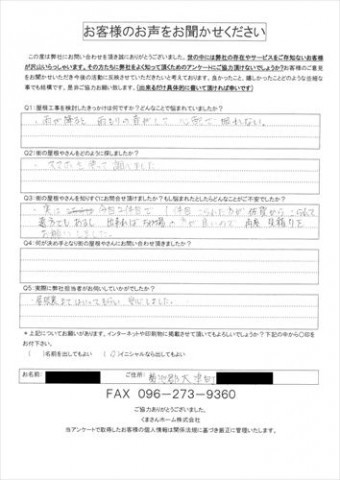 お客様のお声をお聞かせください
この度は弊社にお問い合わせを頂き誠にありがとうございました。世の中には弊社の存在やサービスをご存知ないお客様
が沢山いらっしゃいます。その方たちに弊社をよく知って頂くためのアンケートにご協力頂けないでしょうか?お客様のご意見
をお聞かせいただき今後の活動に反映させていただきたいと考えております。良かったこと、嬉しかったことどのような些細な
事でも結構です。是非ご協力お願い致します。(出来るだけ具体的に書いて頂ければ幸いです)
Q1:屋根工事を検討したきっかけは何ですか?どんなことで悩まれていましたか?
・雨が降ると 雨もりの音がして 心配で 眠れない。
Q2:街の屋根やさんをどのように探しましたか?
・スマホを使って 探しました
Q3:街の屋根やさんを知りすぐにお問合せ頂きましたか?もし悩まれたとしたらどんなことがご不安でしたか?
・実は 今回2件目で 1件目
お願いしました。
Q4:何が決め手となり街の屋根やさんにお問い合わせ頂きましたか?
Q5:実際に弊社担当者がお伺いしていかがでしたか?
・屋根裏まで はいってもらい 安心しました。
*上記についてお願いがあります。インターネットや印刷物に掲載させて頂いてもよろしいでしょうか?下記の中から〇印を
お付下さい。
( )名前を出してもよい (〇)イニシャルなら出してもよい
お名前: ご住所: 菊池郡大津町
FAX 096-273-9360
ご協力ありがとうございました。
くまさんホーム株式会社
当アンケートで取得したお客様の個人情報は関係法規に基づき厳正に管理いたします。